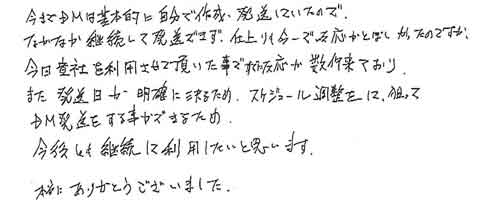 今までDMは基本的に自分で作成、発送していたので、
なかなか継続して発送できず、仕上りも今一つで反応がとぼしかったのですが、
今回貴社を利用させて頂いた事で反応が数件来ており、
また発送日が明確に決るため、スケジュール調整をし、狙って
DM発送をする事ができるため、
今後も継続して利用したいと思います。
本当にありがとうございました。